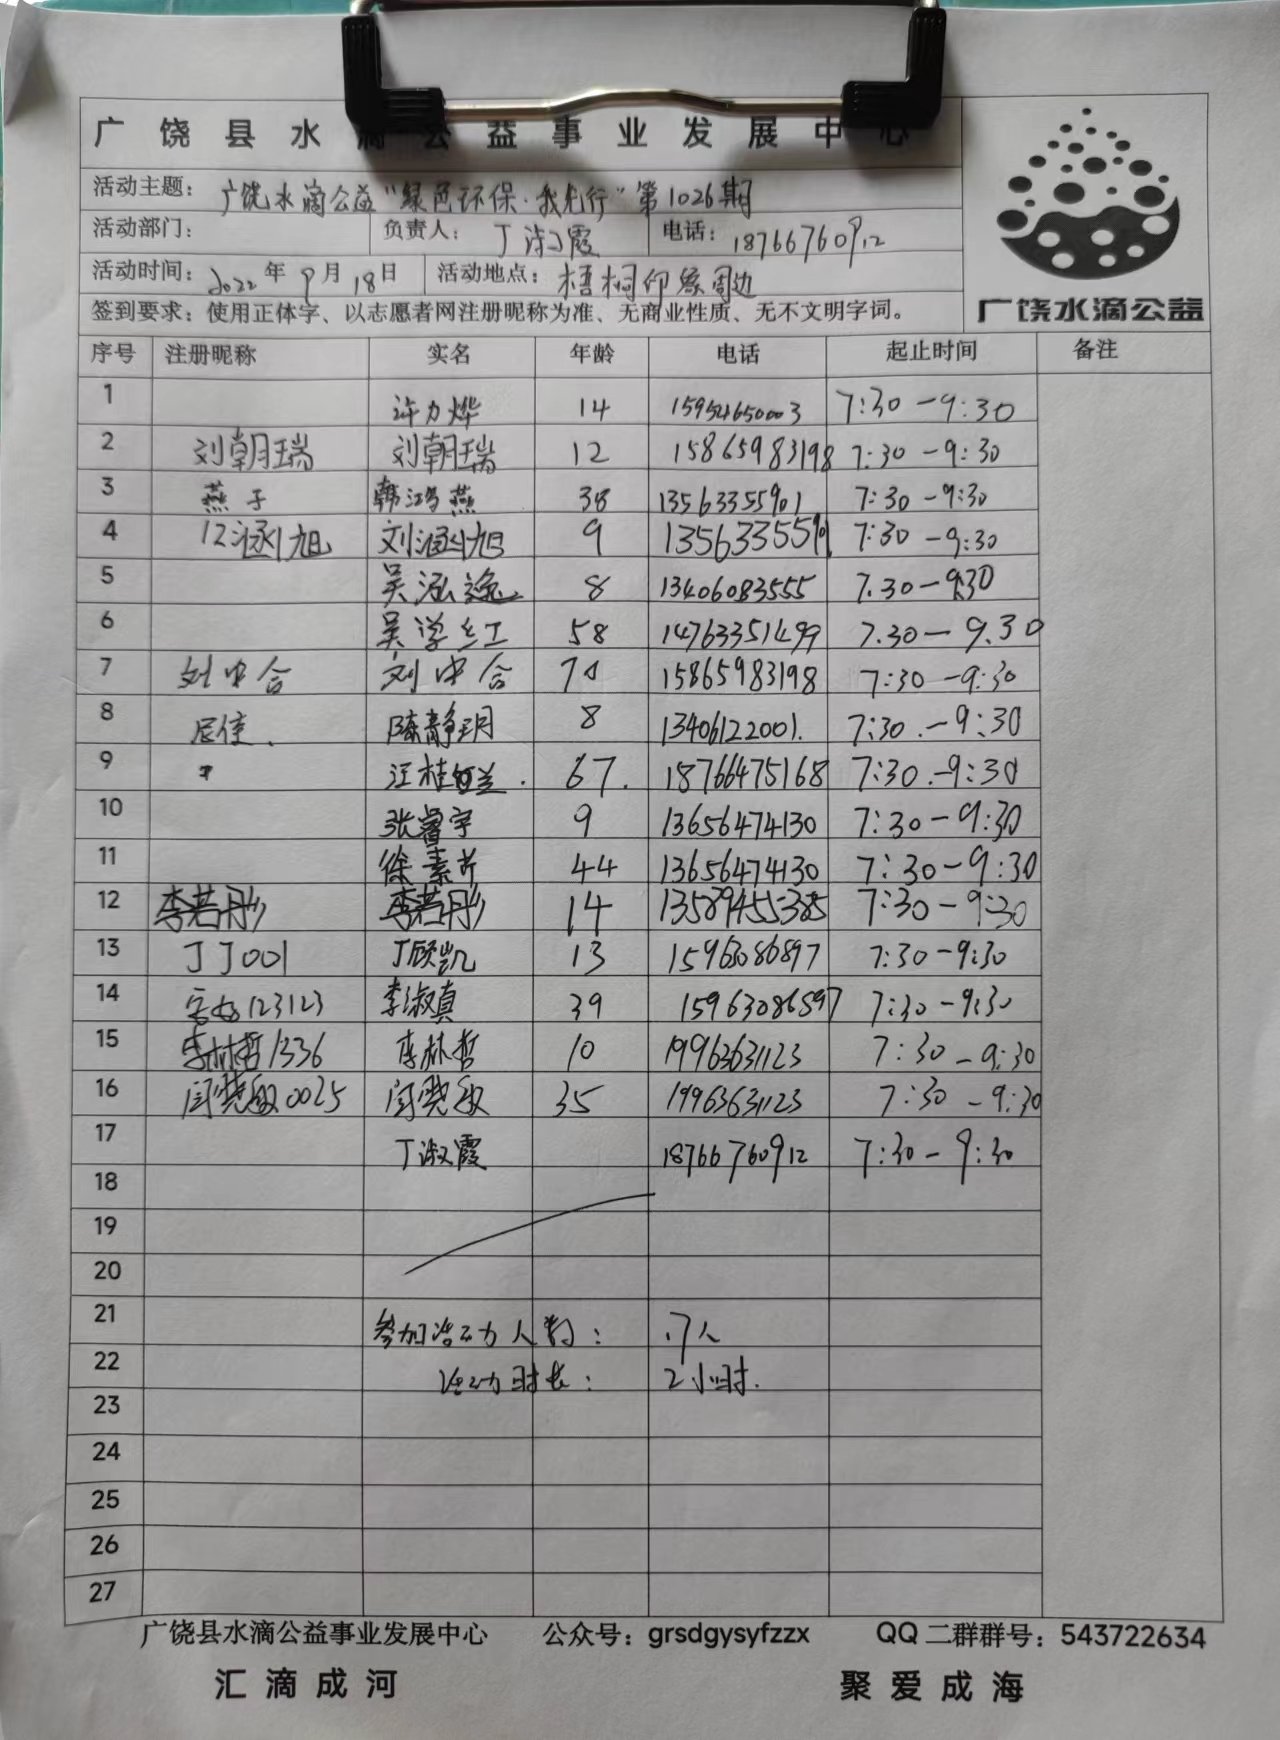 广饶县水滴公益事业发展中心
活动主题: 广饶水滴公益“绿色环保·我先行”第1026期
活动部门: 负责人: 丁淑霞 电话: 18766760912
活动时间: 2022年9月18日 活动地点: 梧桐印象周边
签到要求: 使用正体字、以志愿者网注册昵称为准、无商业性质、无不文明字词。
广饶水滴公益
序号 注册昵称 实名 年龄 电话 起止时间 备注
1 许力烨 14 15954650003 7:30-9:30
2 刘朝瑞 刘朝瑞 12 15865983198 7:30-9:30
3 燕子 韩鸿燕 38 13563355901 7:30-9:30
4 12涵旭 刘涵旭 9 13563355901 7:30-9:30
5 吴泓逸 8 13406083555 7.30-9:30
6 吴学红 58 14763351499 7.30-9.30
7 刘中合 刘中合 70 15865983198 7:30-9:30
8 陈静玥 8 13406122001. 7:30.-9:30
9 汪桂兰. 67. 18766475168 7:30.-9:30
10 张睿宇 9 13656474130 7:30-9:30
11 徐素芹 44 13656474130 7:30-9:30
12 李若彤 李若彤 14 13589455385 7:30-9:30
13 丁丁001 丁颀凯 13 15963086897 7:30-9:30
14 123123 李淑真 39 15963086597 7:30-9:30
15 李林哲1336 李林哲 10 19963631123 7:30-9:30
16 闫晓敏0025 闫晓敏 35 19963631123 7:30-9:30
17 丁淑霞 18766760912 7:30-9:30
18
19
20
21 参加活动人数: 17人
22 活动时长: 2小时.
23
24
25
26
27
广饶县水滴公益事业发展中心 公众号: grsdgysyfzzx QQ二群群号: 543722634
汇滴成河 聚爱成海